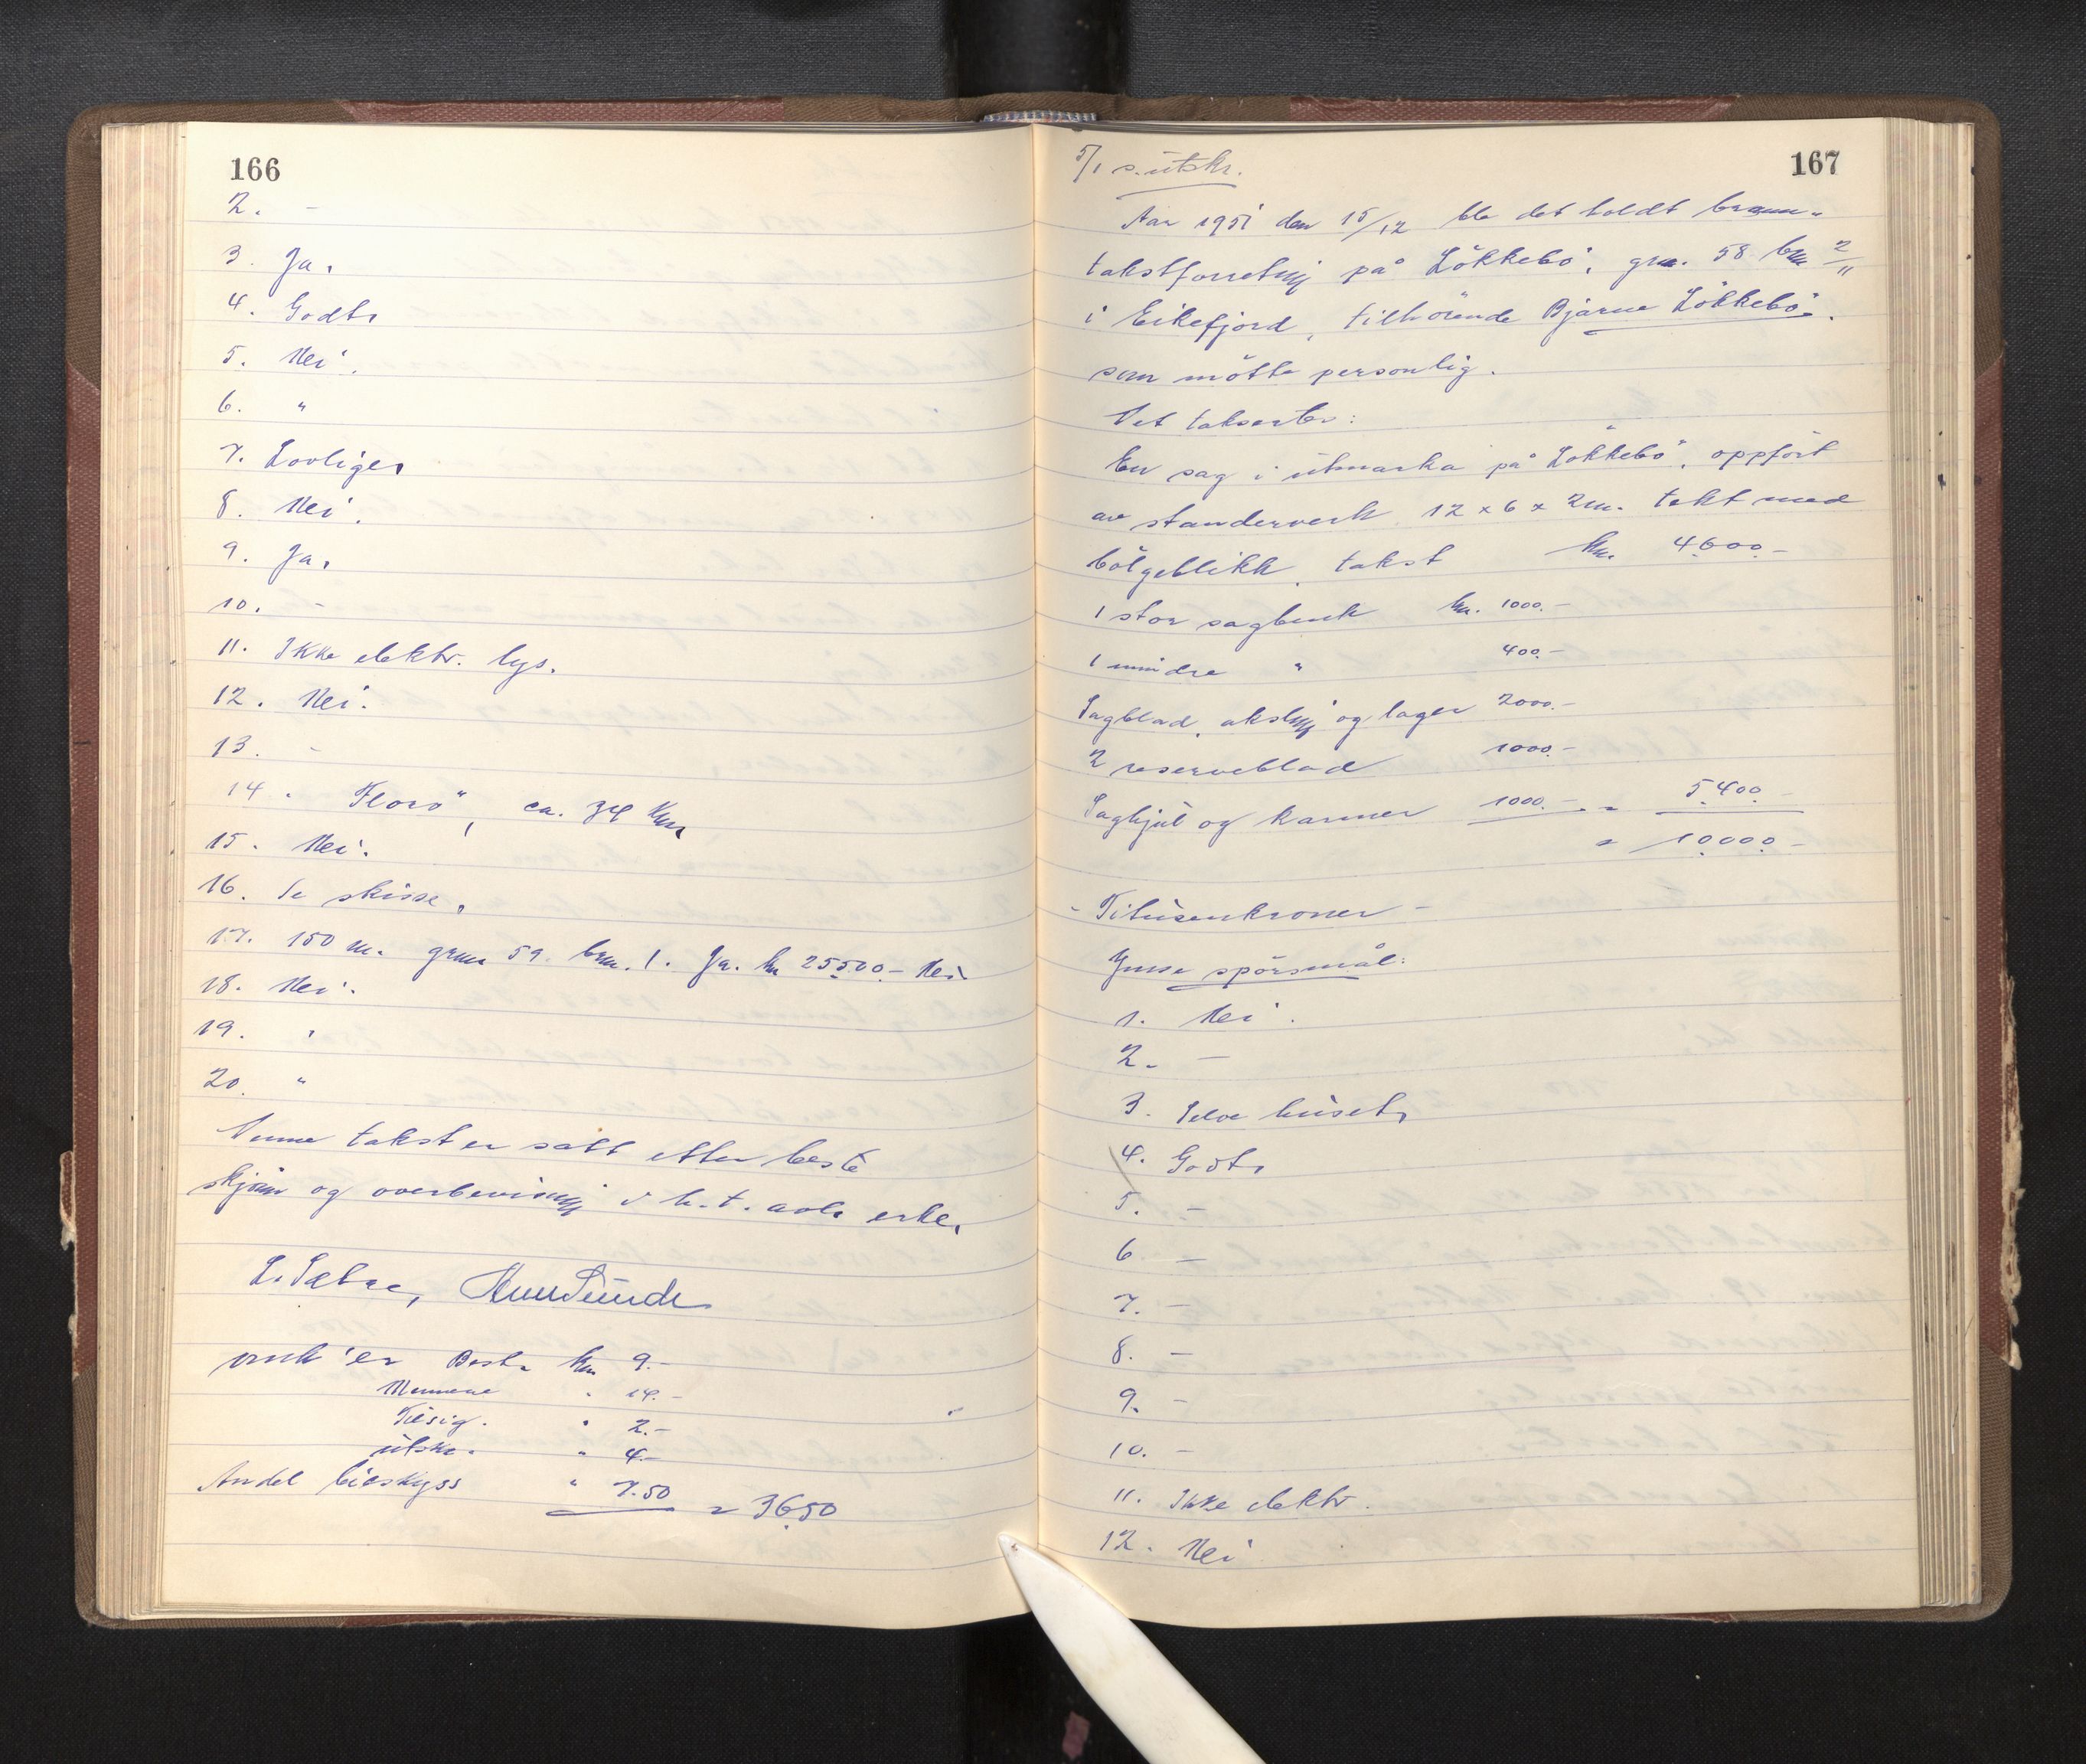 166
2. -
3. Ja.
4. Godt.
5. Nei.
6. "
7. Lovlige.
8. Nei.
9. Ja.
10. -
11. Ikke elektr. lys.
12. Nei.
13. -
14. Florø, ca. 34 km.
15. Nei.
16. Se skisse.
17. 150 m. grnr 59. brn. 1. Ja. kr 25500.- Nei
18. Nei.
19. "
20. "
Denne takst er satt etter beste
skjønn og overbevisning i h.t. avl. erkl.
L. Sætre,
omk'er Best. kr 9.-
Mennene " 14.-
Tilsig. " 2.-
utskr. " 4.-
Andel bilskyss " 7.50 = 36.50
167
5/1 s. utskr.
Aar 1951 den 15/12 ble det holdt brann-
takstforretning på Løkkebø, grn. 58 brn 2/11
i Eikefjord, tilhørende Bjarne Løkkebø.
som møtte personlig.
Det takserte:
En sag i utmarka på Løkkebø, oppført
av standerverk 12 x 6 x 2 m. tekt med
bølgeblikk, takst kr. 4600.-
1 stor sagbenk kr. 1000.-
1 mindre " 400.-
Sagblad, aksling og lager 2000.-
2 reserveblad 1000.-
Saghjul og karmer 1000.- = 5400.-
= 10.000.-
- Titusenkroner -
Ymse spørsmål:
1. Nei.
2. -
3. Selve huset.
4. Godt.
5. -
6. -
7. -
8. -
9. -
10. -
11. Ikke elektr.
12. Nei